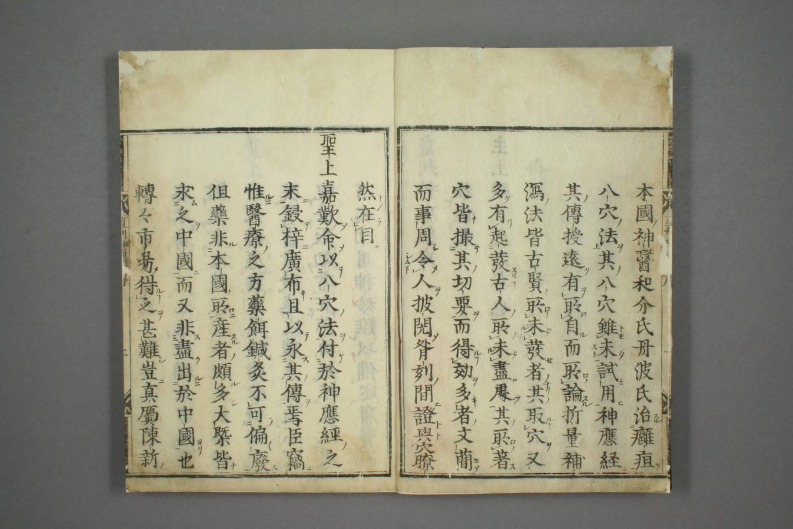 本國神醫和介氏丹波氏治癰疽
八穴法其八穴雖未試用神應經
其傳授遠有所自而所論折量補
瀉法皆古賢所未發者其取穴又
多有起發古人所未盡處其所著
穴皆撮其切要而得効多者文簡
而事周令人披閱胷刻間證與穴瞭
然在目
聖上嘉歎命以八穴法付於神應經之
末鋟梓廣布且以永其傳焉臣竊
惟醫療之方藥餌鍼灸不可偏廢
但藥非本國所產者頗多大槩皆
求之中國而又非盡出於中國也
轉々市易得之甚難豈真贋陳新